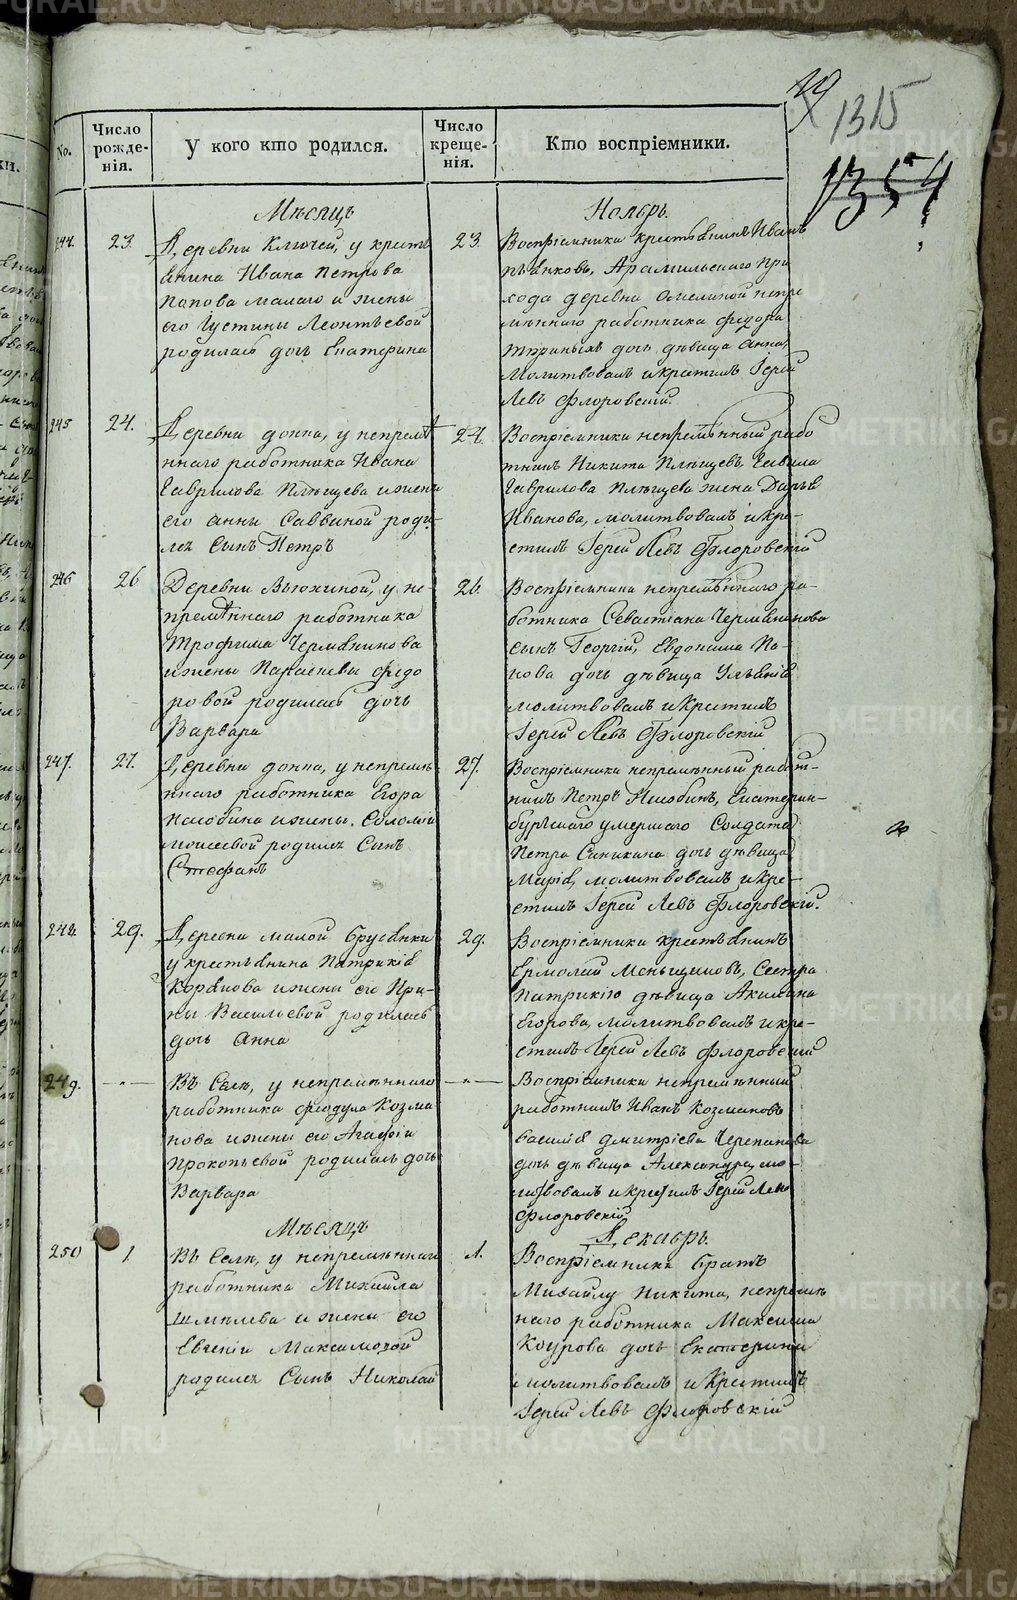 19
1315
1354
No.
Число рожде-нія.
У кого кто родился.
Число креще-нія.
Кто воспріемники.
Мѣсяцъ
Ноябрь.
244.
23.
Деревни Ключей, у кресть
янина Ивана Петрова
Попова малаго и жены
его Густины Леонтьевой
родилась дочь Екатерина
23.
Воспріемники крестьянинъ Иванъ
Пьянковъ, Арамильскаго при
хода деревни непре
мѣннаго работника Федора
дочь дѣвица Анна,
Молитвовалъ и крестилъ Іерей
Левъ Флоровскій.
245
24.
Деревни донна, у непремѣ
ннаго работника Ивана
Гаврилова Плѣщева и жены
его Анны Саввиной роди
лся Сынъ Петръ
24.
Воспріемники непремѣнный рабо
тникъ Никита Плѣщевъ, Гаврила
Гаврилова Плѣщева жена Дарья
Иванова, молитвовалъ и кре-
стилъ Іерей Левъ Флоровскій
246
26
Деревни Вьюхиной, у не
премѣннаго работника
Трофима Чермянинова
и жены Параскевы Федо
ровой родилась дочь
Варвара
26.
Воспріемники непремѣннаго ра-
ботника Севастіана Чермянинова
сынъ Георгій, Евдокима По-
пова дочь дѣвица Ульянія
молитвовалъ и крестилъ
Іерей Левъ Флоровскій
247.
27.
Деревни донна, у непремѣ
ннаго работника Егора
и жены. Соломіи
Моисеевой родился Сынъ
Стефанъ
27.
Воспріемники непремѣнный работ-
никъ Петръ Екатерин-
бургскаго умершаго Солдата
Петра Синицина дочь дѣвица
Марія, молитвовалъ и кре-
стилъ Іерей Левъ Флоровскій.
248.
29.
Деревни малой Брусянки
у крестьянина Патрикія
Корякова и жены его Ири-
ны Васильевой родилась
дочь Анна
29.
Воспріемники крестьянинъ
Ермолай Меньщиковъ, Сестра
Патрикію дѣвица Акилина
Егорова, молитвовалъ и кре-
стилъ Іерей Левъ Флоровскій
249.
-"-
Въ Селѣ, у непремѣннаго
работника Феодула Козма
нова и жены его Агафіи
Прокопьевой родилась дочь
Варвара
-"-
Воспріемники непремѣнный
работникъ Иванъ Козмановъ
Василія Дмитріева Черепанова
дочь дѣвица Александра, мо-
литвовалъ и крестилъ Іерей Левъ
Флоровскій.
Мѣсяцъ
Декабрь.
250
1
Въ Селѣ, у непремѣннаго
работника Михайла
Шмелева и жены его
Евгеніи Максимовой
родился Сынъ Николай
1.
Воспріемники братъ
Михайлу Никита, непремѣ
ннаго работника Максима
Коурова дочь Екатерина
молитвовалъ и Крестилъ
Іерей Левъ Флоровскій
METRIKI.GASO-URAL.RU